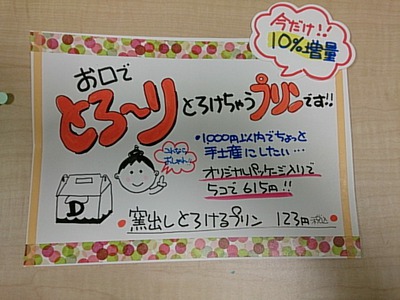 今だけ!!
10%増量
お口で
とろ〜り とろけちゃうプリンです!!
・1000円以内でちょっと
手土産にしたい…
オリジナルパッケージ入りで
5コで615円!!
D
窯出しとろけるプリン 123円